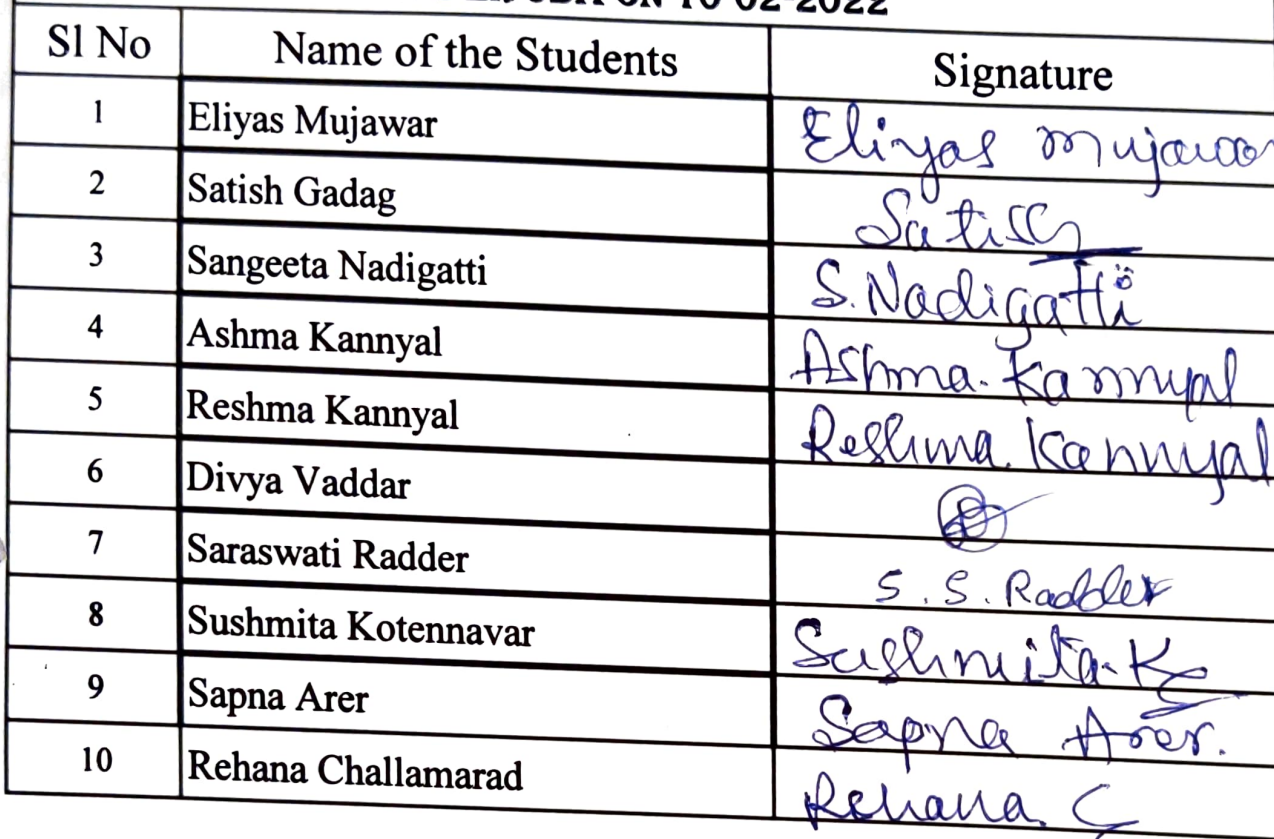 ON 10-02-2022
Sl No Name of the Students Signature
1 Eliyas Mujawar Eliyas Mujawar
2 Satish Gadag Satish
3 Sangeeta Nadigatti S. Nadigatti
4 Ashma Kannyal Ashma. Kannyal
5 Reshma Kannyal Reshma. Kannyal
6 Divya Vaddar
7 Saraswati Radder S. S. Radder
8 Sushmita Kotennavar Sushmita. K
9 Sapna Arer Sapna Arer.
10 Rehana Challamarad Rehana. C